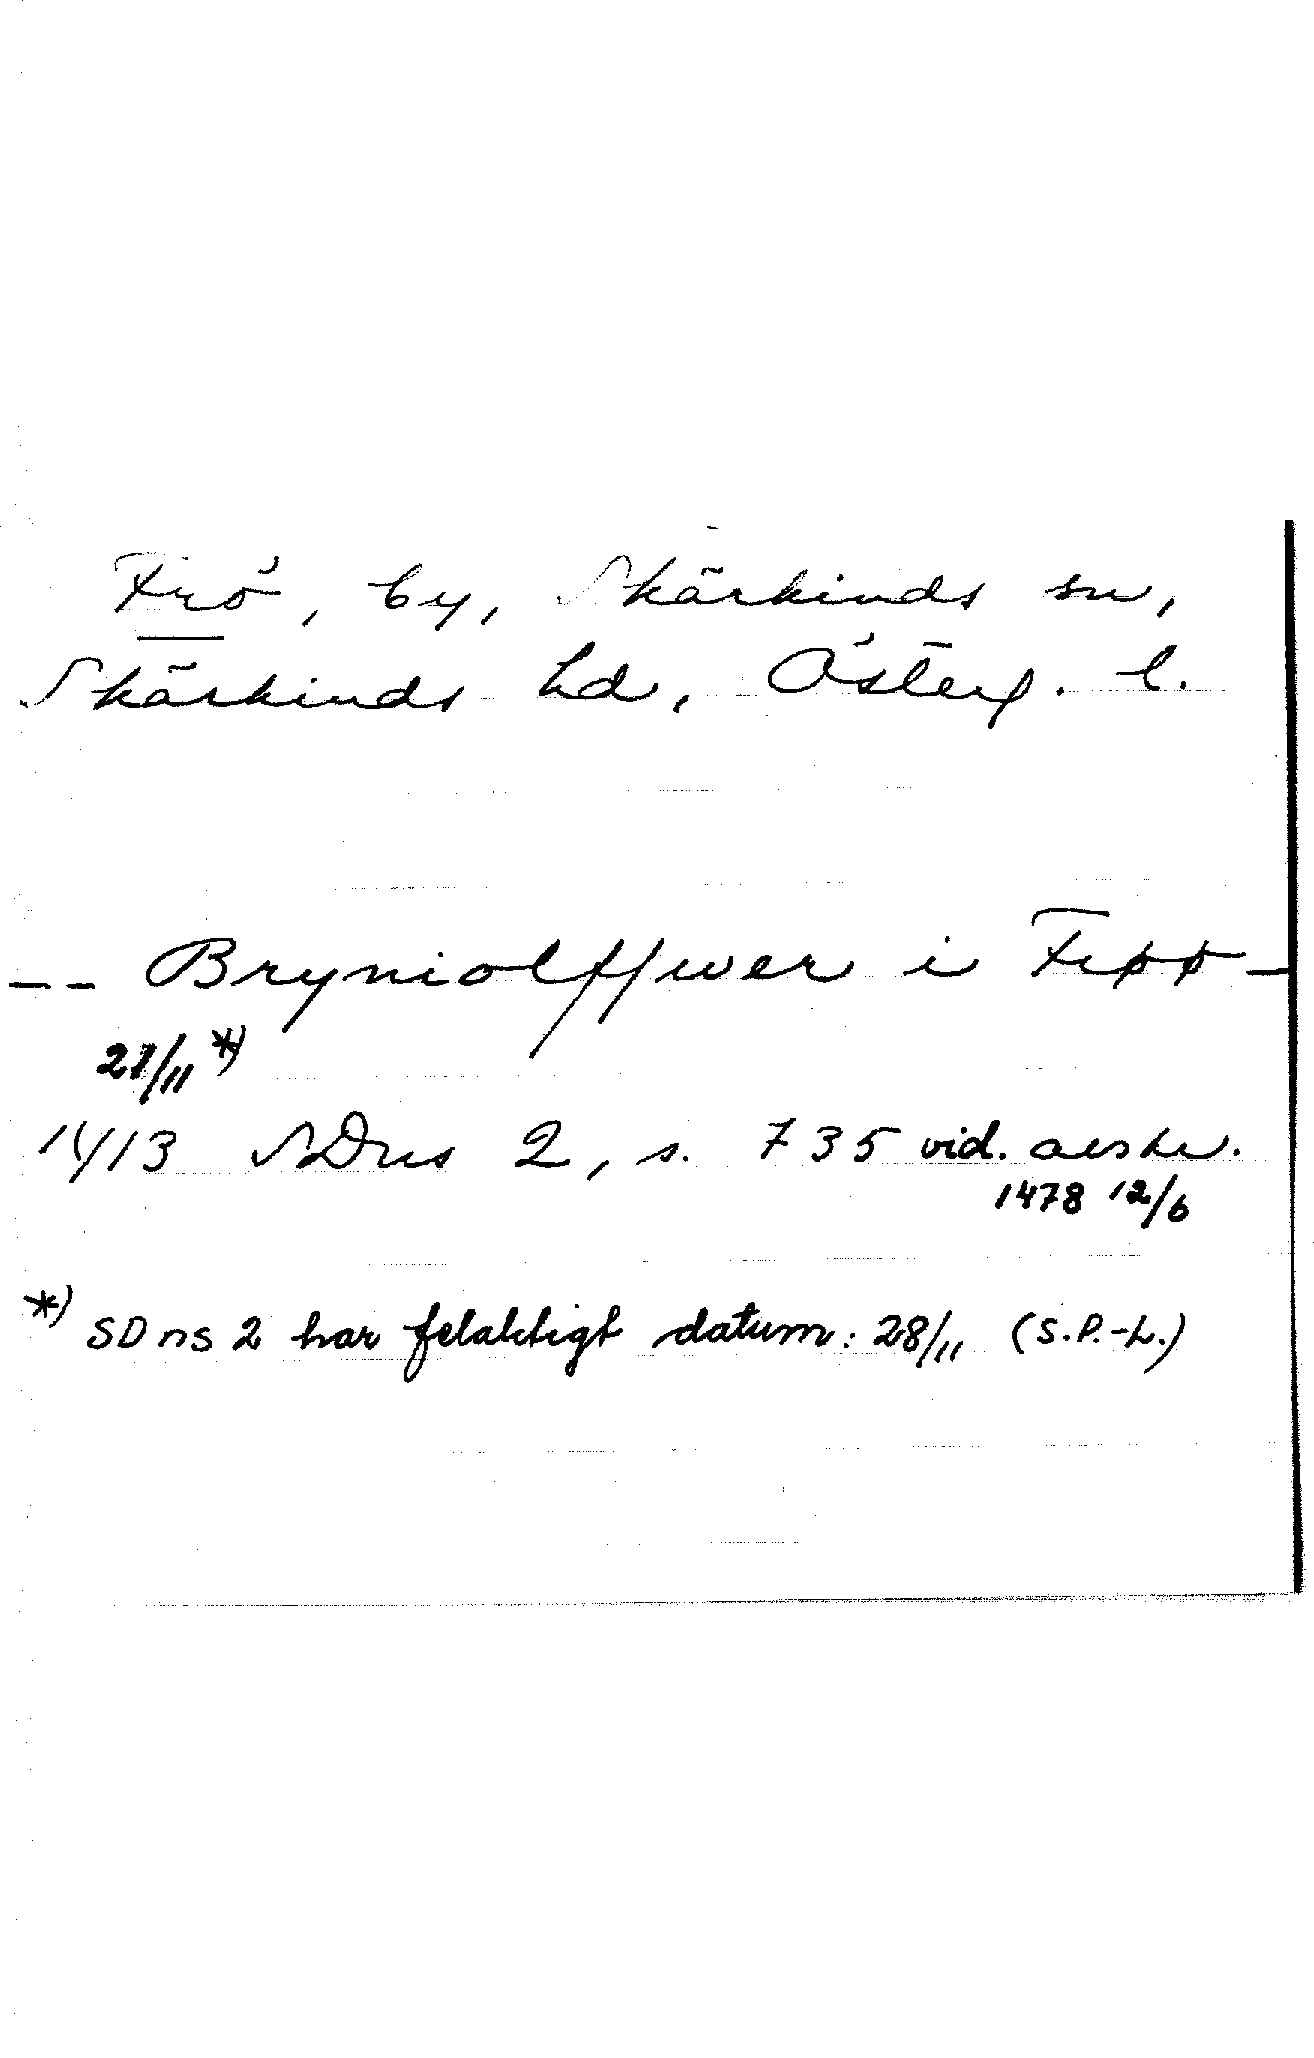 Frö, by, Skärkinds sn,
Skärkinds hd, Österg. l.
-- Bryniolffwer i Frøø -
21/11 *)
1413 SDns 2, s. 735 vid. avskr.
1478 12/6
*) SDns 2 har felaktigt datum: 28/11 (S.P.-L.)